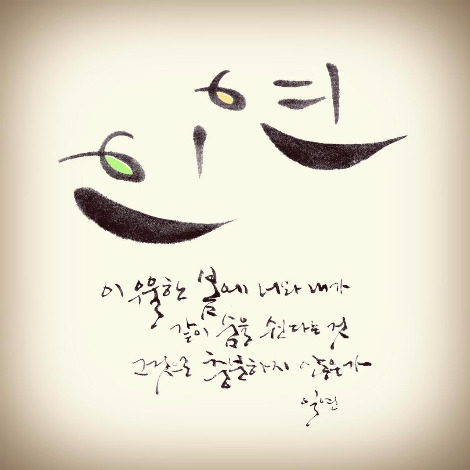 인연
이 우울한 봄에 너와 내가
같이 숨을 쉰다는 것
그것으로 충분하지 않은가